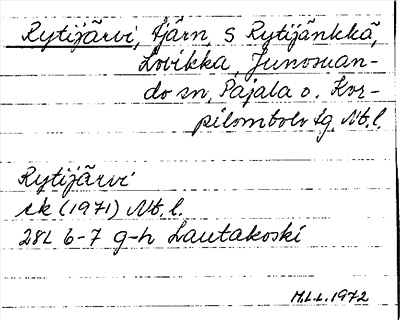 Rytijärvi, tjärn, S Rytijänkkä,
Lovikka, Junosuan-
do sn, Pajala o. Kor-
pilombolo tg, Nb.l.
Rytijärvi
ek (1971) Nb.l.
28L 6-7 g-h Lautakoski
M.L.L. 1972